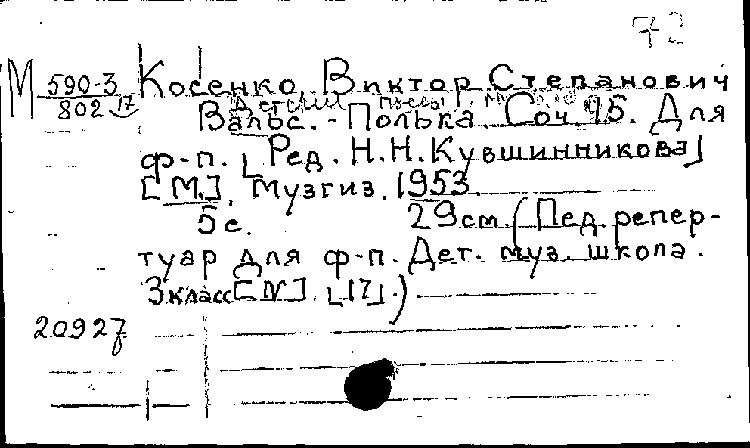 72
М 590-3 Косенко, Виктор Степанович
802 17 Детские пьесы
Вальс. - Полька. Соч. 15. Для
ф-п. [Ред. Н.Н. Кувшинникова]
[М.], Музгиз, 1953.
5 с. 29 см. (Пед. репер-
туар для ф-п. Дет. муз. школа.
3 класс [№] [17].)
20927